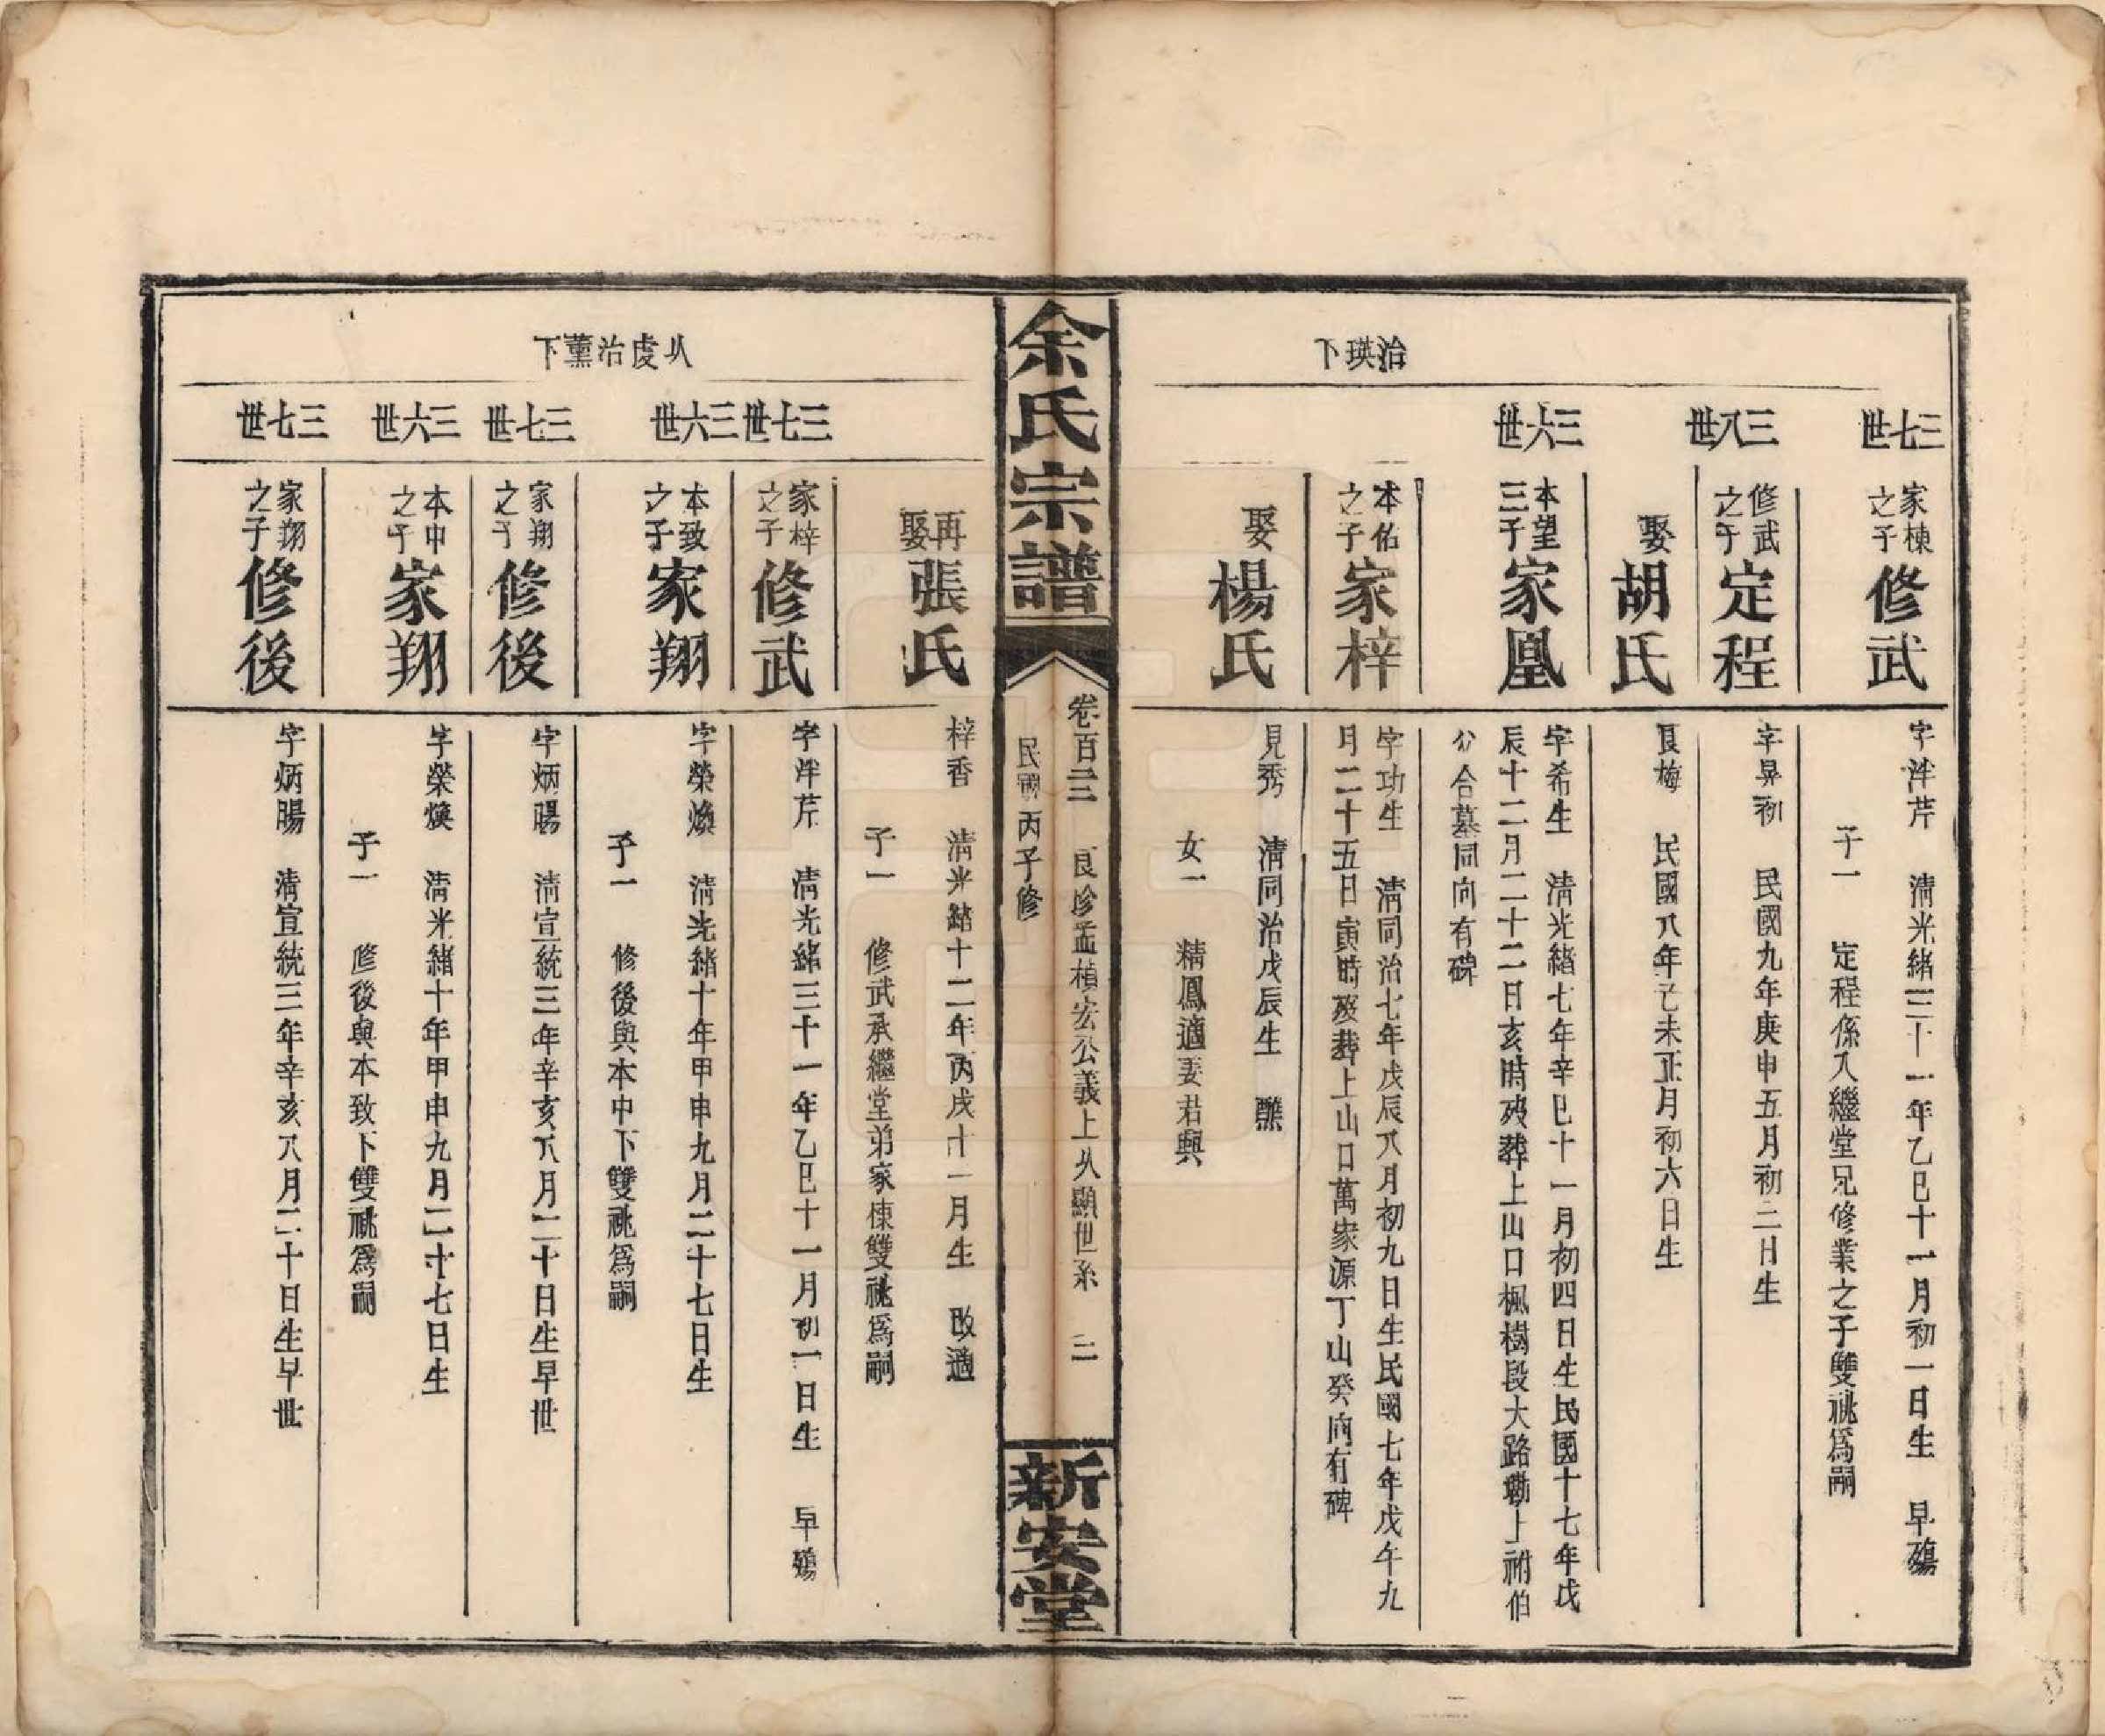 治瑛下
三七世
家棟之子
修武
字泮芹　清光緒三十一年乙巳十一月初一日生　早殤
子一　定程係入繼堂兄修業之子雙祧爲嗣
三八世
修武之子
定程
字昇初　民國九年庚申五月初二日生
娶
胡氏
良梅　民國八年己未正月初六日生
三六世
本望三子
家凰
字希生　清光緒七年辛巳十一月初四日生民國十七年戊
辰十二月二十二日亥時歿葬上山口楓樹段大路塝上祔伯
公合墓同向有碑
本佑之子
家梓
字功生　清同治七年戊辰八月初九日生民國七年戊午九
月二十五日寅時歿葬上山口萬家源丁山癸向有碑
娶
楊氏
見秀　清同治戊辰生　醮
女一　精鳳適姜君興
余氏宗譜
卷百三三　良珍孟楨宏公義上从顯世系　二
民國丙子修
新安堂
从虔治薰下
再娶
張氏
梓香　清光緒十二年丙戌十一月生　改適
子一　修武承繼堂弟家棟雙祧爲嗣
三七世
家梓之子
修武
字泮芹　清光緒三十一年乙巳十一月初一日生　早殤
三六世
本致之子
家翔
字榮煥　清光緒十年甲申九月二十七日生
子一　修後與本中下雙祧爲嗣
三七世
家翔之子
修後
字炳暘　清宣統三年辛亥八月二十日生早世
三六世
本中之子
家翔
字榮煥　清光緒十年甲申九月二十七日生
子一　修後與本致下雙祧爲嗣
三七世
家翔之子
修後
字炳暘　清宣統三年辛亥八月二十日生早世